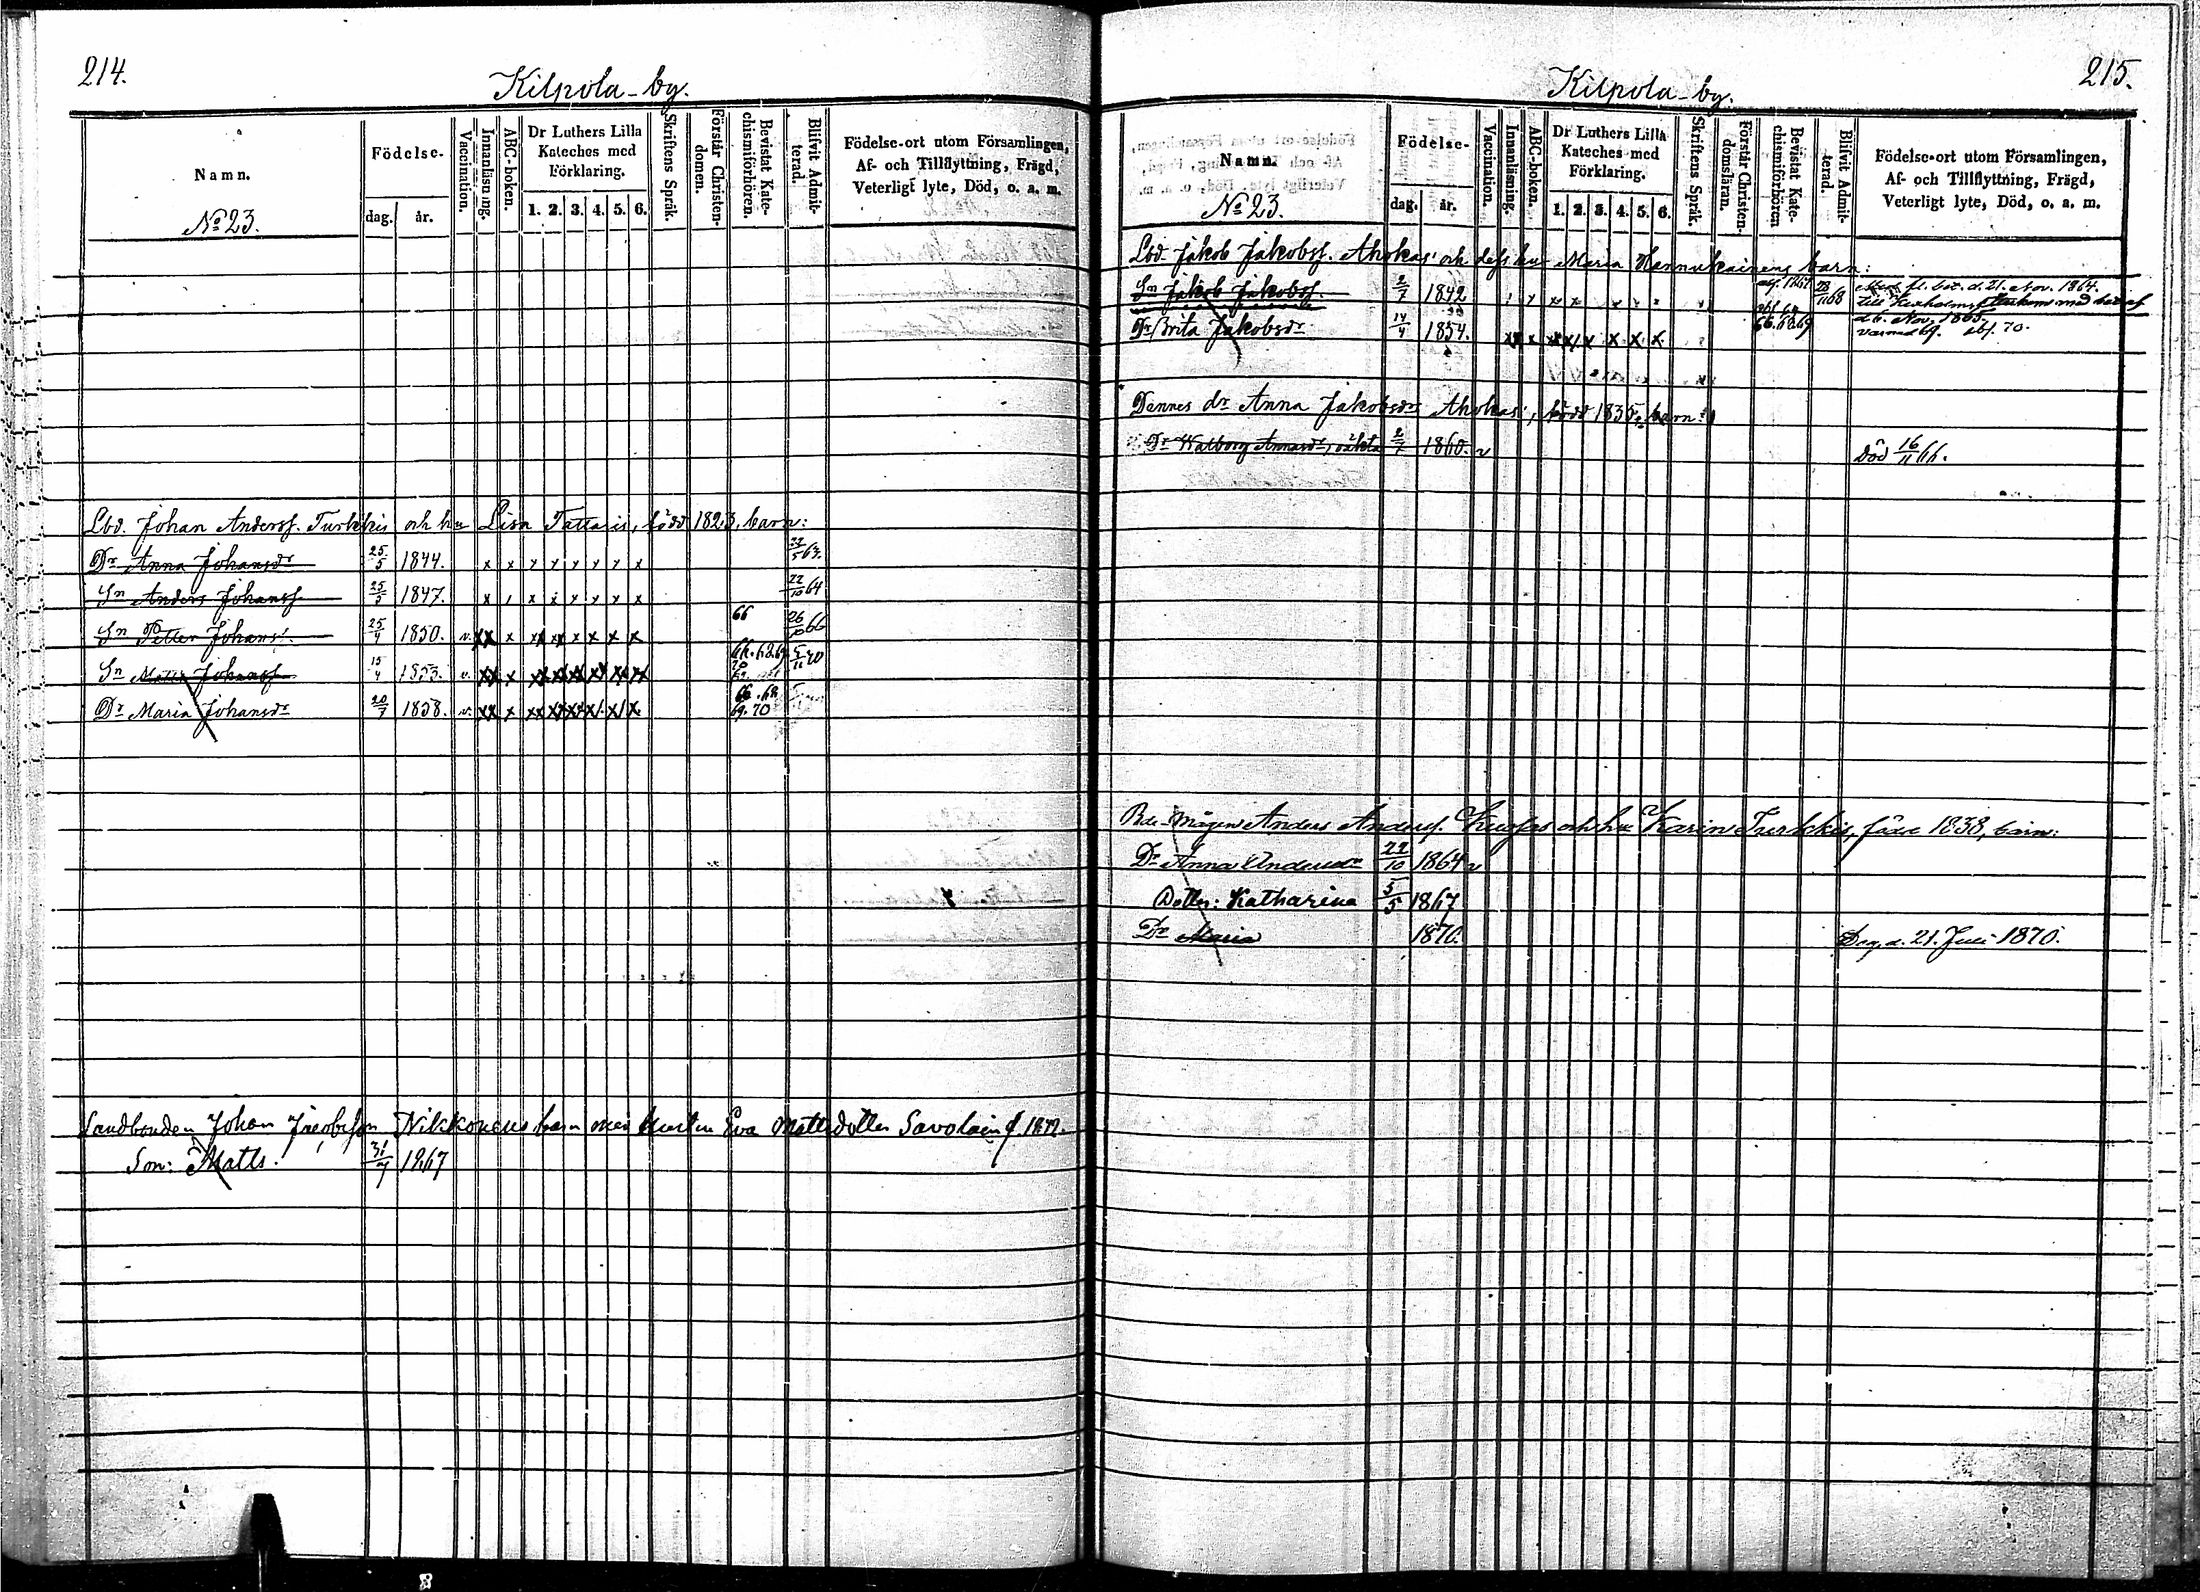 214.
Kilpola-by.
Namn.
No 23.
Födelse-
dag. år.
Vaccination.
Innanläsning.
ABC-boken.
Dr Luthers Lilla
Kateches med
Förklaring.
1. 2. 3. 4. 5. 6.
Skriftens Språk.
Förstår Christen-
domen.
Bevistat Kate-
chismiförhören.
Blifvit Admit-
terad.
Födelse-ort utom Församlingen,
Af- och Tillflyttning, Frägd,
Veterligt lyte, Död, o. a. m.
Lbd. Johan Anderss. Turkkis och hu Lisa Tattaris, född 1823, barn:
Dr Anna Johansdr 25/5 1844. x x x x x x x x 22/5 63.
Sn Anders Johanss 1847. x x x x x x x 22/10 64
Sn Petter Johanss. 25/4 1850. v. xx x xx xx x x x x 66 26/10 66
Sn Matts Johanss 15/4 1853. v. xx x 5/11 70
Dr Maria Johansdr 20/7 1858. v. xx x 66. 68 69. 70
Landbonden Johan Jacobsson Nikkonens barn med hustru Eva Mattsdotter Savolain f. 18
Son: Matts. 31/7 1867
215.
Kilpola-by.
Namn.
No 23.
Födelse-
dag. år.
Vaccination.
Innanläsning.
ABC-boken.
Dr Luthers Lilla
Kateches med
Förklaring.
1. 2. 3. 4. 5. 6.
Skriftens Språk.
Förstår Christen-
domsläran.
Bevistat Kate-
chismiförhören
Blifvit Admit-
terad.
Födelse-ort utom Församlingen,
Af- och Tillflyttning, Frägd,
Veterligt lyte, Död, o. a. m.
Lbd. Jakob Jakobss. Ahokas' och dess hu Maria Hannukainens barn:
Sn Jakob Jakobss. 2/7 1842 fl. bet. d. 21. Nov. 1864.
till Kexholms med bet af
d. 6. Nov. 1865.
Dr Brita Jakobsdr 14/4 1854. xx x x x x 66. 68. 69 abs. 70.
Dennes dr Anna Jakobsdr Ahokas', född 1835, barn:
Dr Walborg Annasdr, oäkta 2/7 1860. v Död 16/11 66.
Bde-mågen Anders Anderss. Kuosas och hu Karin Turkkis, född 1838, barn:
Dr Anna Andersdr 22/10 1864 v
Dotter: Katharina 5/5 1867
Dr Maria 1870. d. 21. Juni 1870.